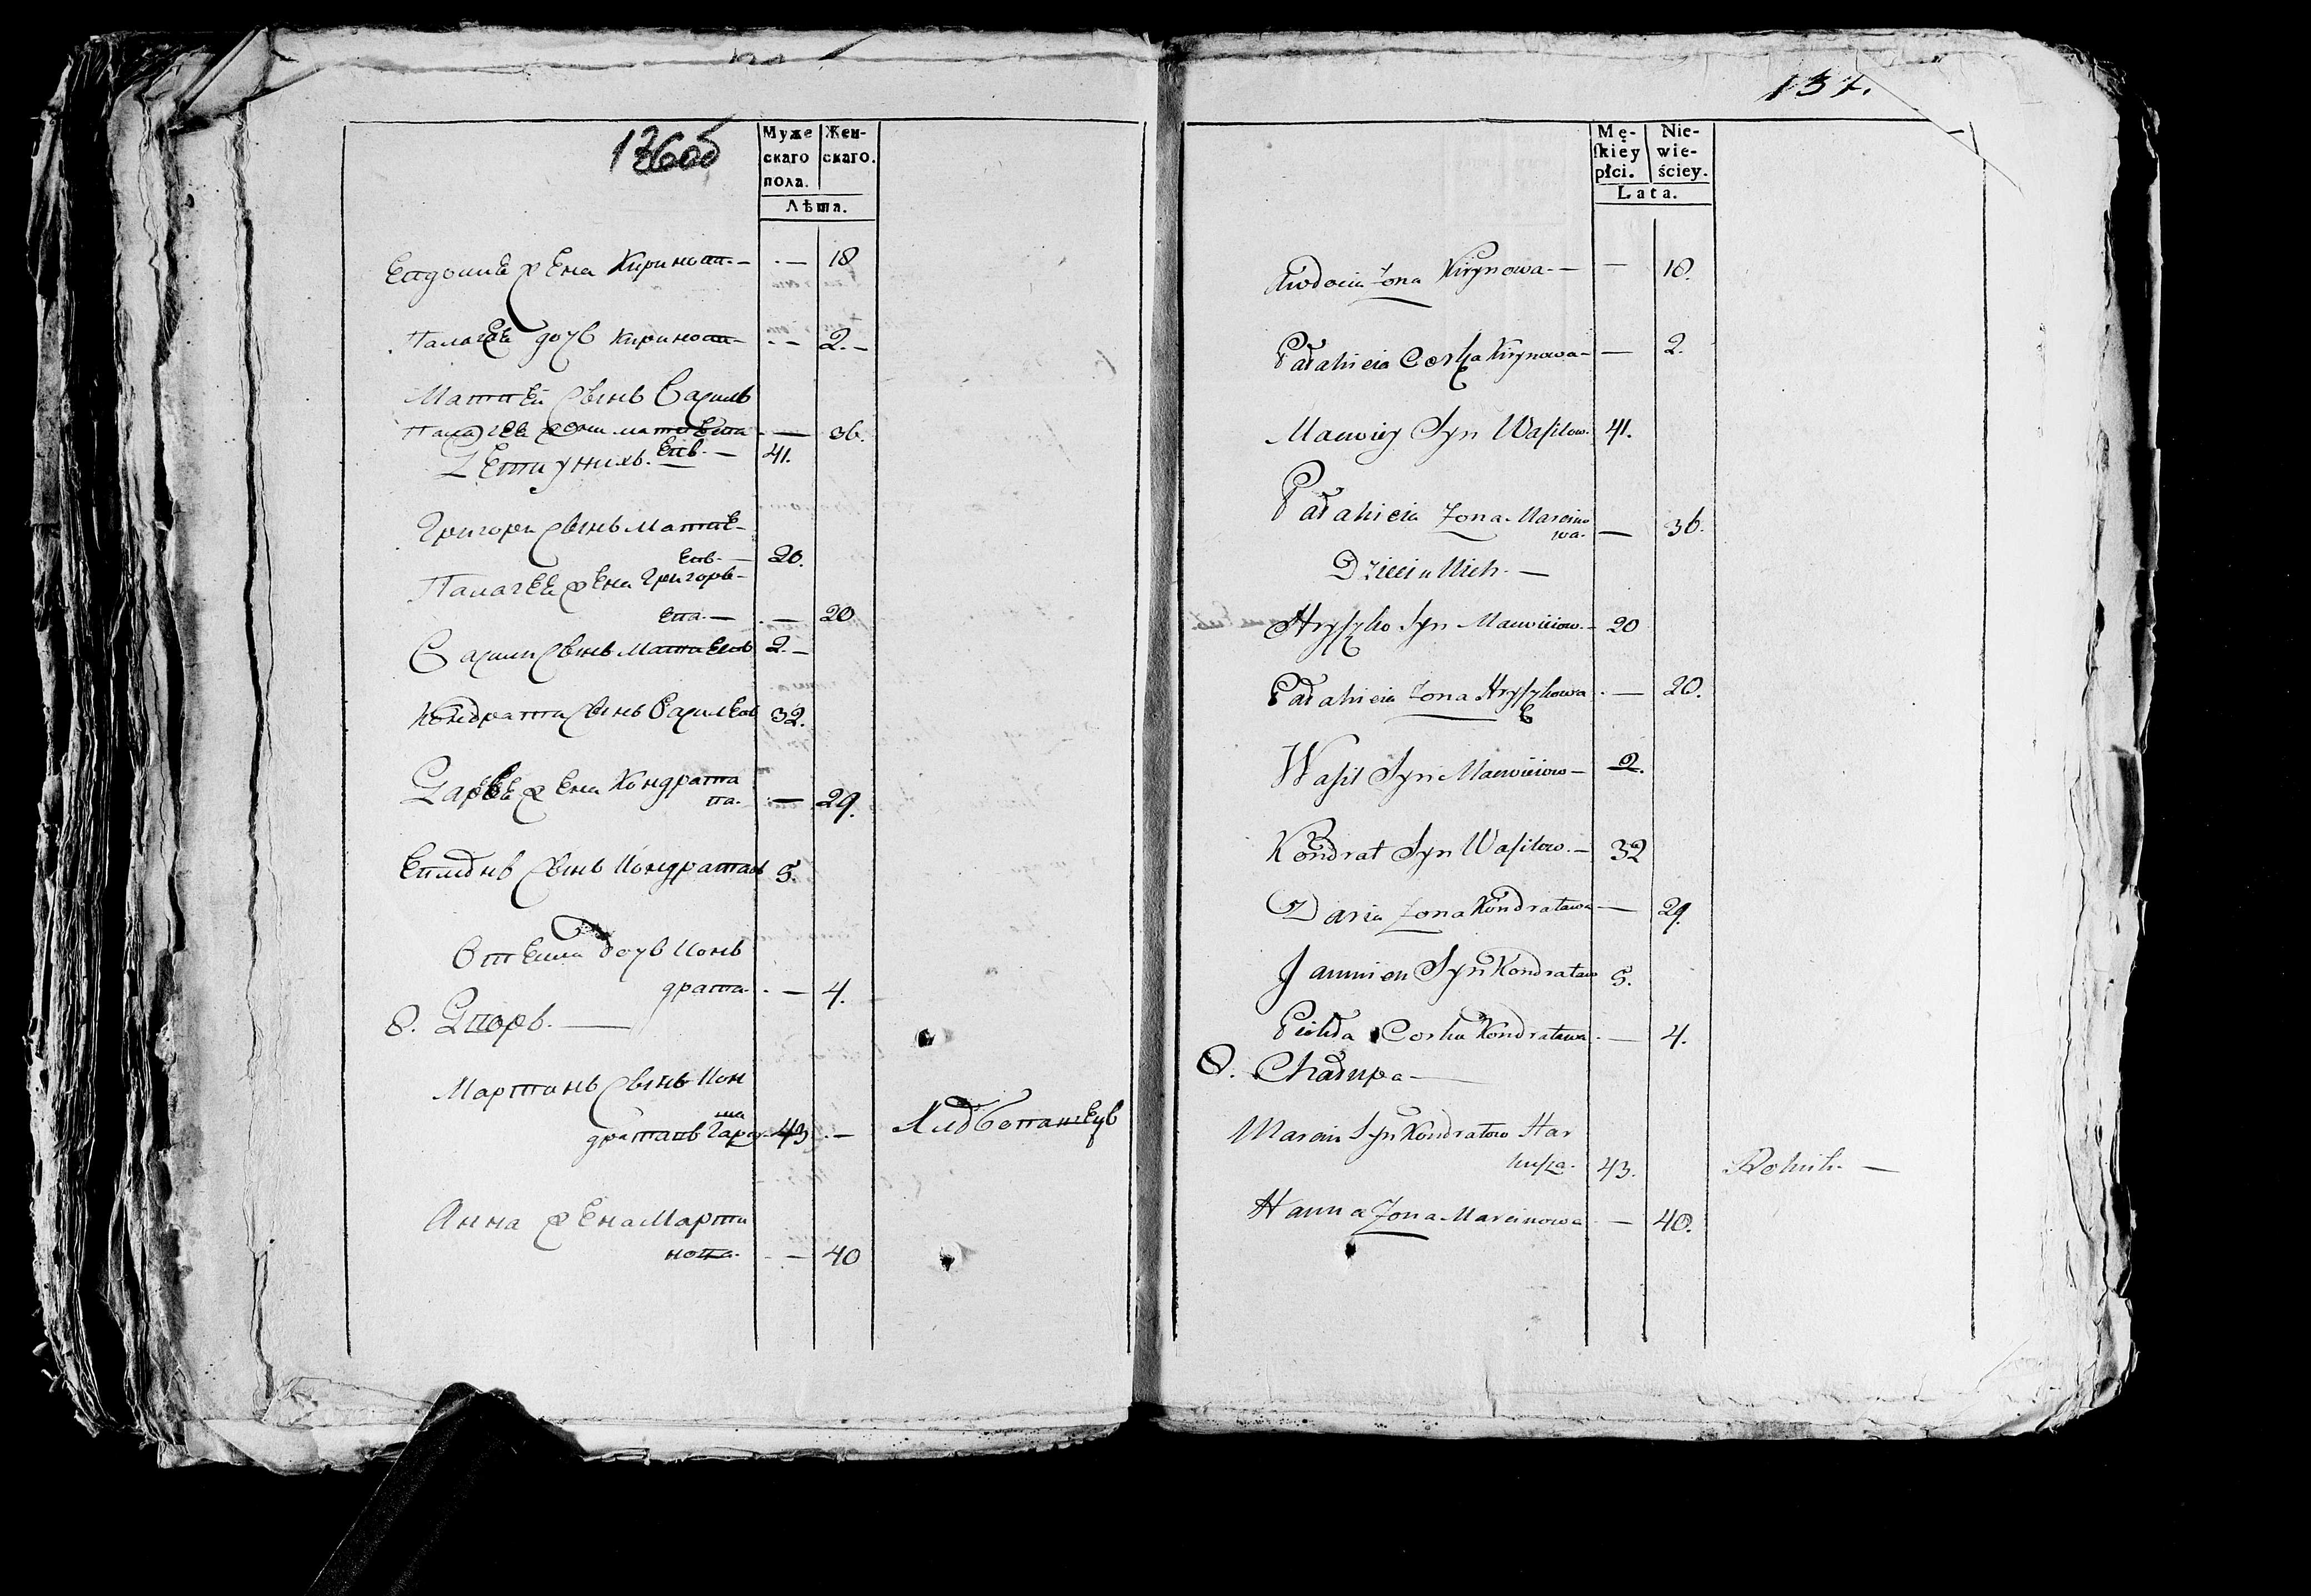 136об
Муже
скаго
пола.
Жен-
скаго.
Лѣта.
Евдошиѣ жена Киринова — — 18
Палагѣѣ дочь Киринова — — 2. —
Матвѣй сынъ Василь
евъ. — 41.
Палагѣѣ жена матвѣева — 36.
Дѣти у нихъ.
Григори сынъ Матвѣ-
евъ. — 20.
Палагѣѣ жена Григорь-
ева. — — 20
Васили сынъ Матвѣевъ 2. —
Кондрати сынъ Василѣов 32.
Дарѣѣ жена Кондрата
ва. — 29.
сынъ Кондратов 5.
дочь Конь
драта. — 4.
8. Дворъ. —
Мартинъ сынъ Кон
дратовъ 43. —
Анна жена Марти
нова. — 40
137.
Mę-
ſkiey
płci.
Nie-
wie-
ściey.
Lata.
Awdocia Zona Kirynowa — — 18.
Pałahieia Corka Kirynowa — — 2.
Macwiey Syn Waſilow. 41.
Pałahieia Zona Marcino
wa. — 36.
Dzieci u Nich. —
Hryſzko Syn Macwieiow. — 20
Pałahieia Zona Hryſzkowa. — 20.
Waſil Syn Macwieiow — 2.
Kondrat Syn Waſilow. — 32
Daria Zona Kondratowa — 29.
Syn Kondratow 5.
Corka Kondratowa — 4.
8. Chałupa —
Marcin Syn Kondratow Har
kuſza. 43. Rolnik. —
Hanna Zona Marcinowa — 40.